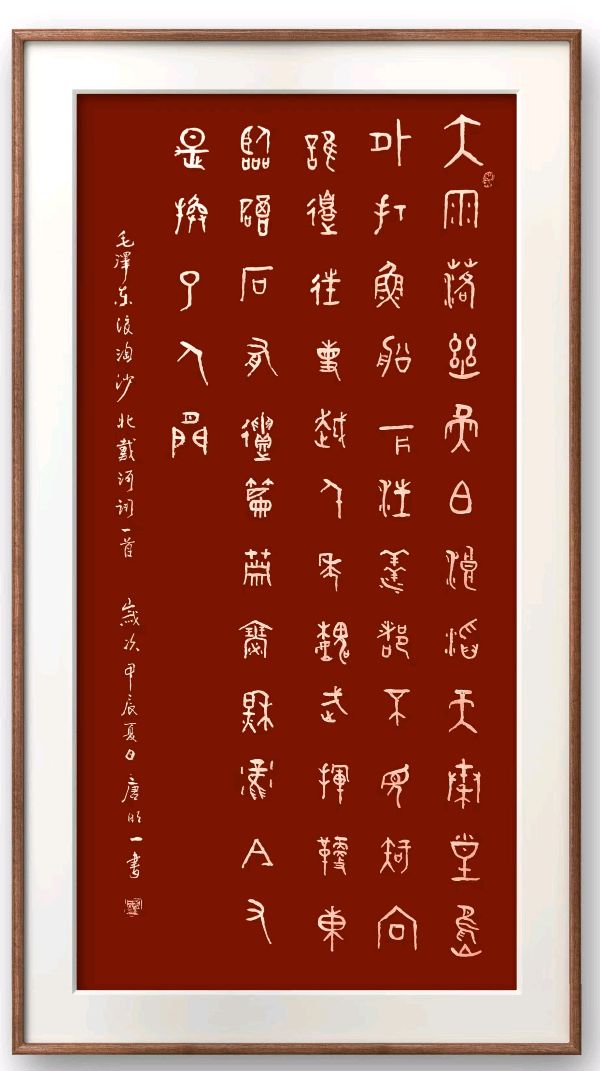 大雨落幽燕白浪滔天秦皇島
外打魚船一片汪洋都不見知向
誰邊往事越千年魏武揮鞭東
臨碣石有遺篇蕭瑟秋風今又
是換了人間
毛澤东浪淘沙北戴河詞一首 歲次甲辰夏日唐明一書